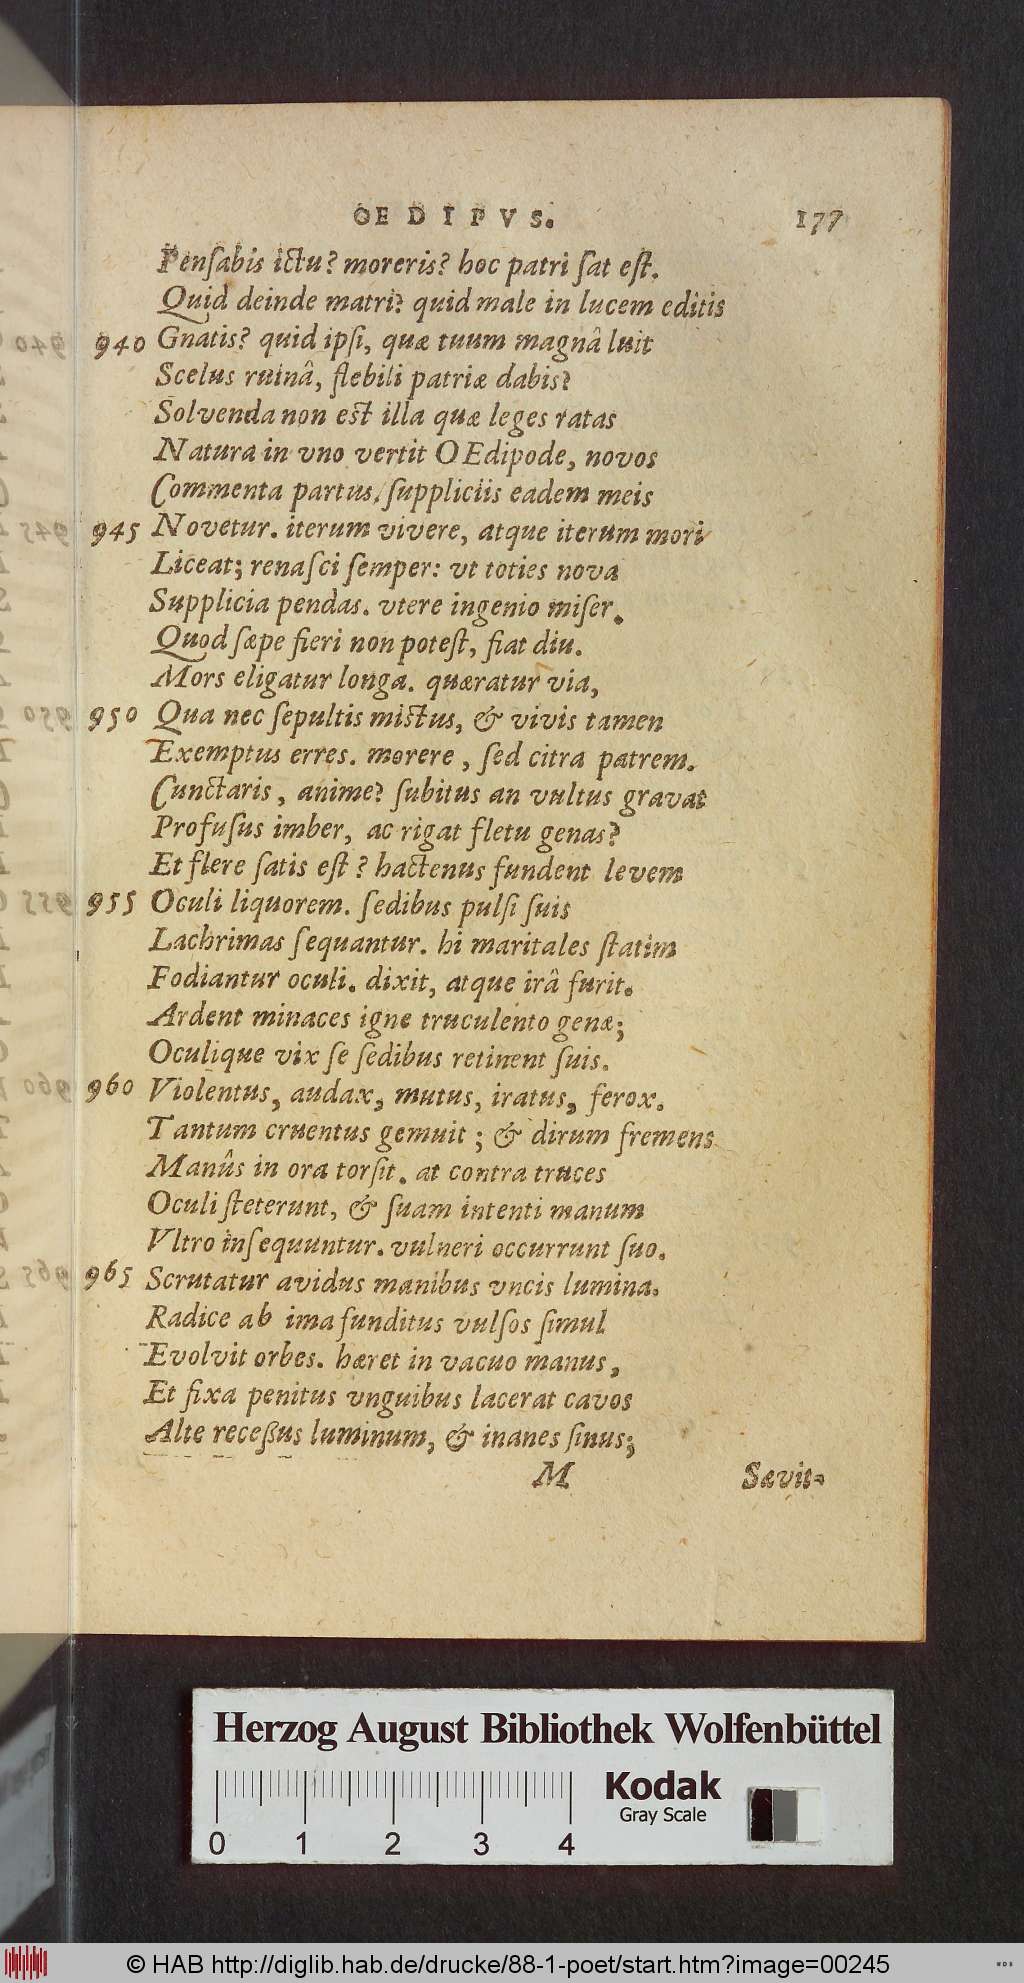 OEDIPVS. 177
Pensabis ictu? moreris? hoc patri sat est.
Quid deinde matri? quid male in lucem editis
940 Gnatis? quid ipsi, quæ tuum magnâ luit
Scelus ruinâ, flebili patriæ dabis?
Solvenda non est illa quæ leges ratas
Natura in vno vertit OEdipode, novos
Commenta partus, suppliciis eadem meis
945 Novetur. iterum vivere, atque iterum mori
Liceat; renasci semper: vt toties nova
Supplicia pendas. vtere ingenio miser.
Quod sæpe fieri non potest, fiat diu.
Mors eligatur longa. quæratur via,
950 Qua nec sepultis mistus, & vivis tamen
Exemptus erres. morere, sed citra patrem.
Cunctaris, anime? subitus an vultus gravat
Profusus imber, ac rigat fletu genas?
Et flere satis est? hactenus fundent levem
955 Oculi liquorem. sedibus pulsi suis
Lachrimas sequantur. hi maritales statim
Fodiantur oculi. dixit, atque irâ furit.
Ardent minaces igne truculento genæ;
Oculique vix se sedibus retinent suis.
960 Violentus, audax, mutus, iratus, ferox.
Tantum cruentus gemuit; & dirum fremens
Manûs in ora torsit. at contra truces
Oculi steterunt, & suam intenti manum
Vltro insequuntur. vulneri occurrunt suo.
965 Scrutatur avidus manibus vncis lumina.
Radice ab ima funditus vulsos simul
Evolvit orbes. hæret in vacuo manus,
Et fixa penitus vnguibus lacerat cavos
Alte recessus luminum, & inanes sinus;
M Sævit-
Herzog August Bibliothek Wolfenbüttel
Kodak
Gray Scale
0 1 2 3 4
© HAB http://diglib.hab.de/drucke/88-1-poet/start.htm?image=00245